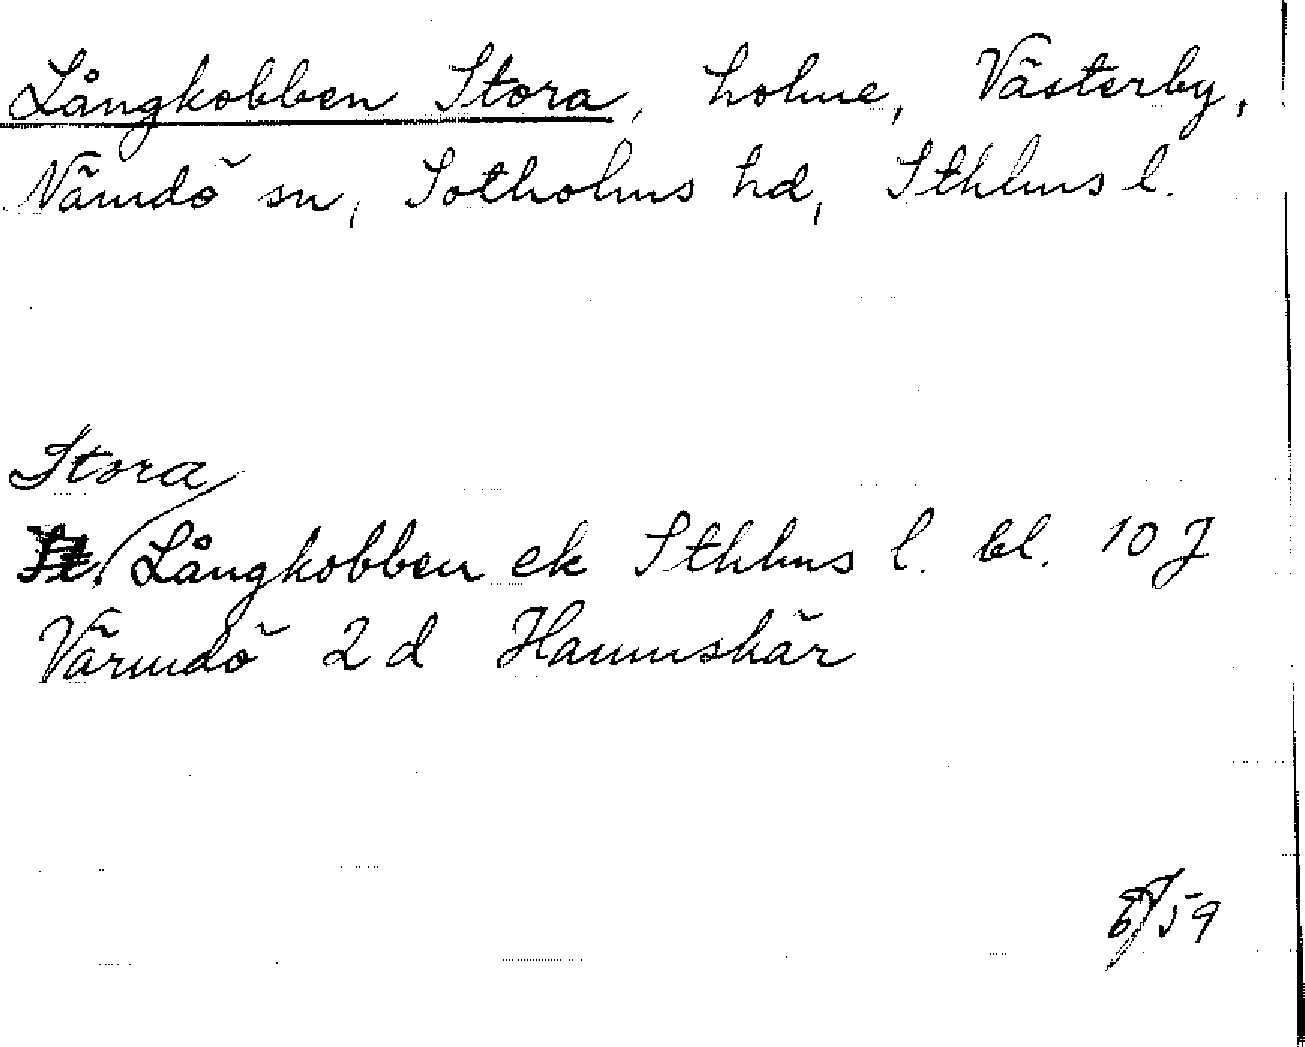 Långkobben Stora, holme, Västerby,
Nämdö sn, Sotholms hd, Sthlms l.
Stora
St. Långkobben ek Sthlms l. bl. 10 J
Värmdö 2 d Hamnskär
59